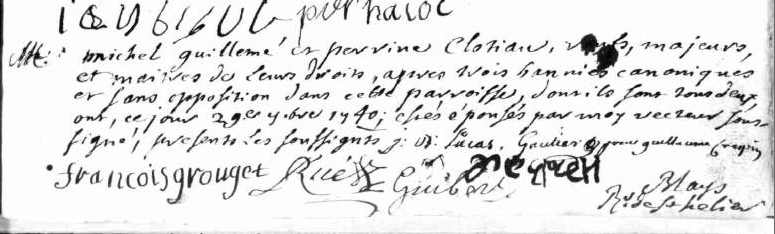 M.
michel guillemé et perrine Clotiau, majeurs,
et maitres de leurs droits, apres trois bannies canoniques
et sans opposition dans cette parroisse, dont ils sont tous deux,
ont, ce jour 29er 9bre 1740, estés épousés par moy recteur sous-
signé, presents les soussignés Lucas, Gautier guillaume
françois grouget Ruée Guibert
Blays
Rr de st helier